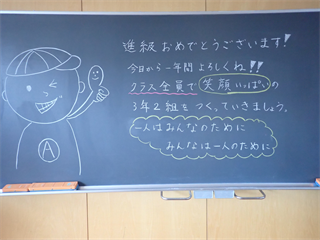 進級おめでとうございます!
今日から一年間よろしくね!!
クラス全員で笑顔いっぱいの
3年2組をつくっていきましょう。
一人はみんなのために
みんなは一人のために
A